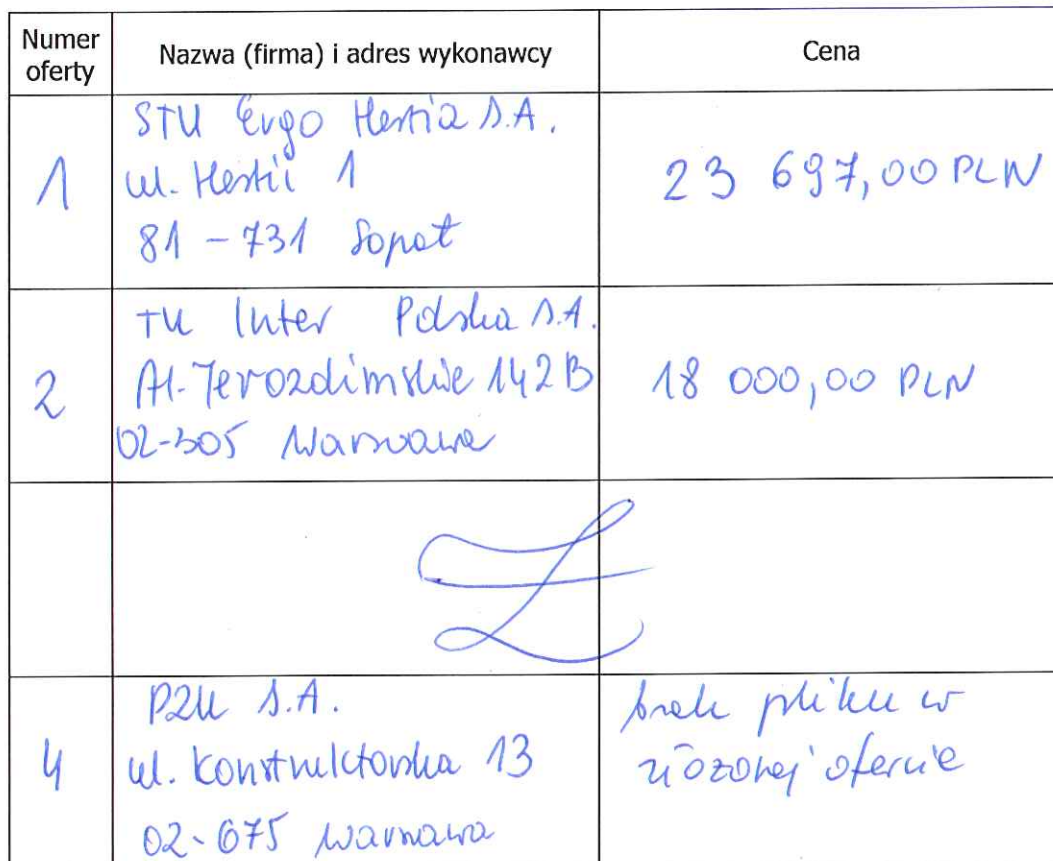 Numer oferty
Nazwa (firma) i adres wykonawcy
Cena
1
STU Ergo Hestia S.A.
ul. Hestii 1
81-731 Sopot
23 697,00 PLN
2
TU Inter Polska S.A.
Al. Jerozolimskie 142B
02-305 Warszawa
18 000,00 PLN
4
PZU S.A.
ul. Konstruktorska 13
02-675 Warszawa
brak pliku w
złożonej ofercie